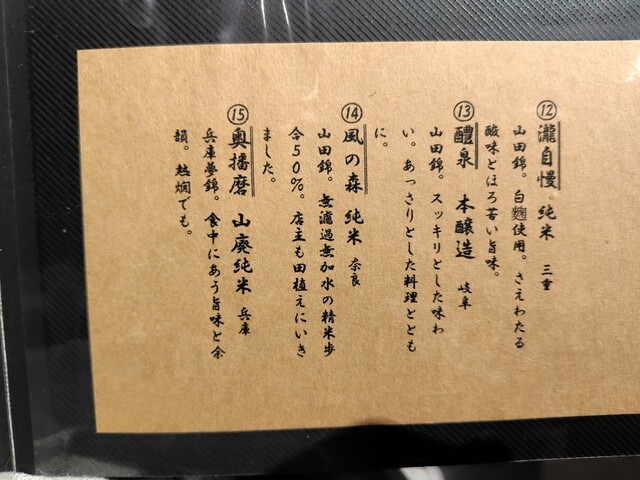 ⑫瀧自慢 純米 三重
山田錦。白麹使用。さえわたる
酸味とほろ苦い旨味。
⑬醴泉 本醸造 岐阜
山田錦。スッキリとした味わ
い。あっさりとした料理ととも
に。
⑭風の森 純米 奈良
山田錦。無濾過無加水の精米歩
合50%。店主も田植えにいき
ました。
⑮奥播磨 山廃純米 兵庫
兵庫夢錦。食中にあう旨味と余
韻。熱燗でも。